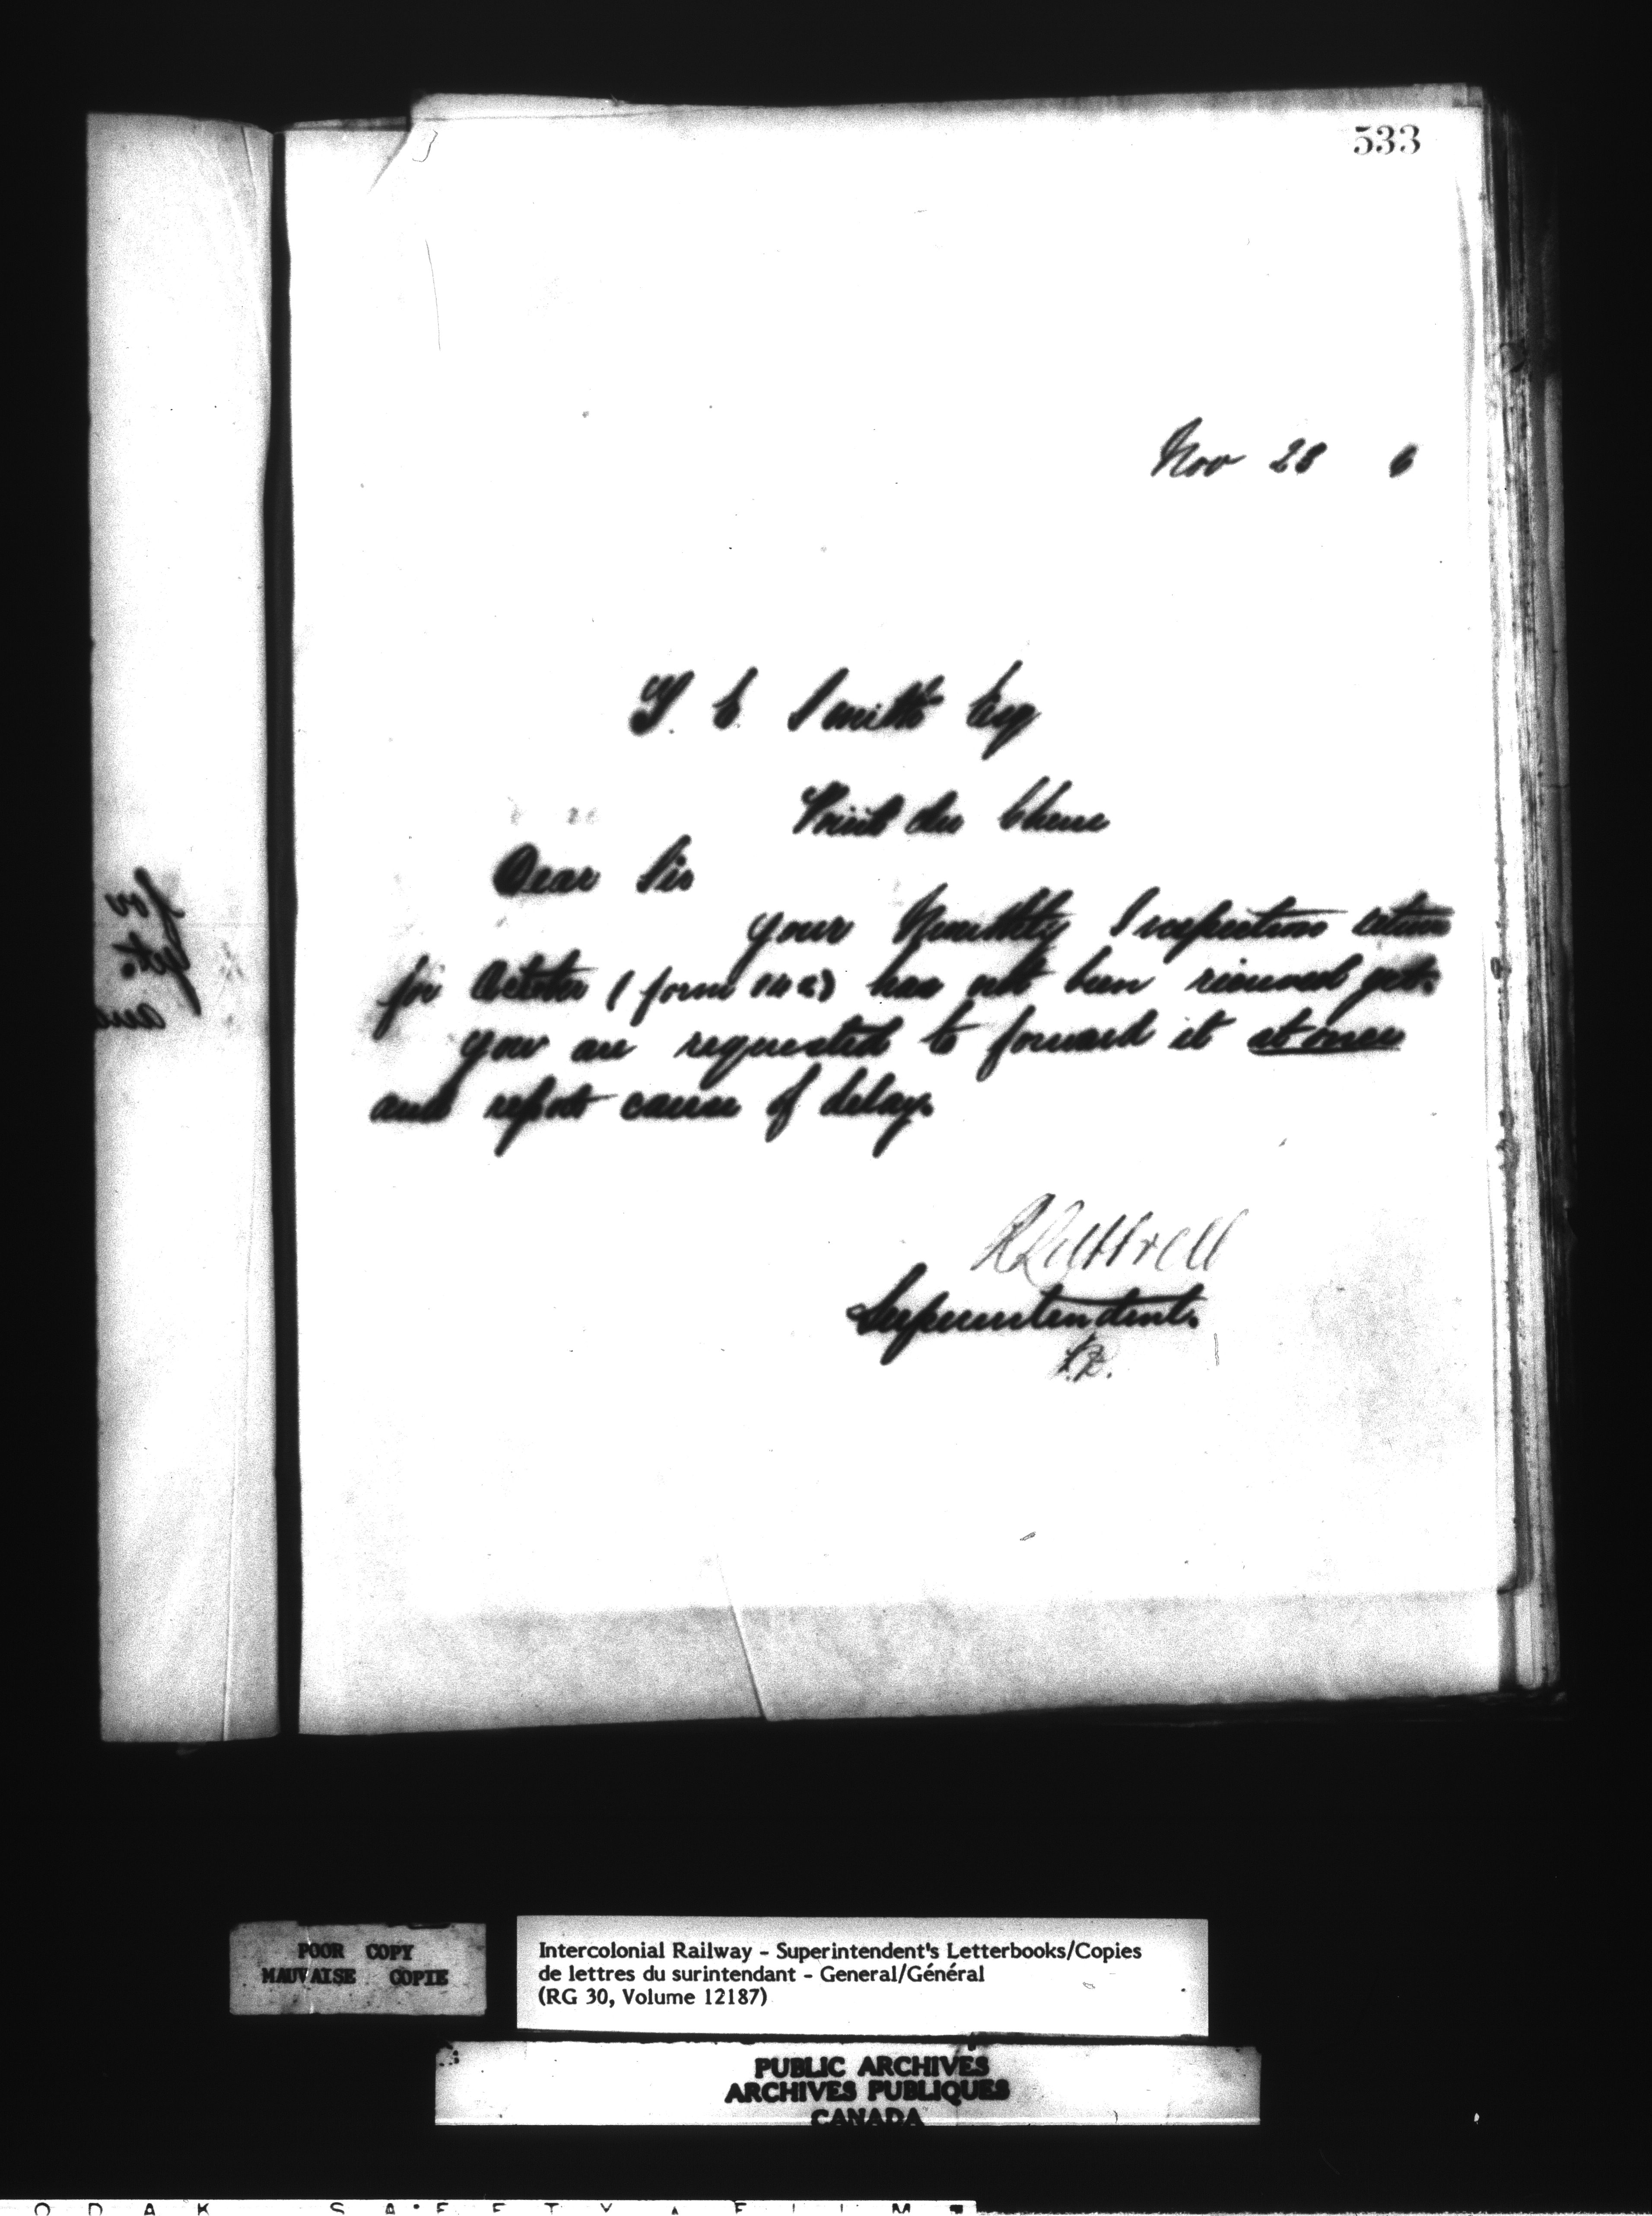 533
Nov 28 6
T. C. Smith Esq
Point du Chene
Dear Sir
your Monthly Inspection return
for October (form 142) has not been received yet.
you are requested to forward it at once
and report cause of delay.
R Luttrell
Superintendent.
POOR COPY
MAUVAISE COPIE
Intercolonial Railway - Superintendent's Letterbooks/Copies
de lettres du surintendant - General/Général
(RG 30, Volume 12187)
PUBLIC ARCHIVES
ARCHIVES PUBLIQUES
CANADA